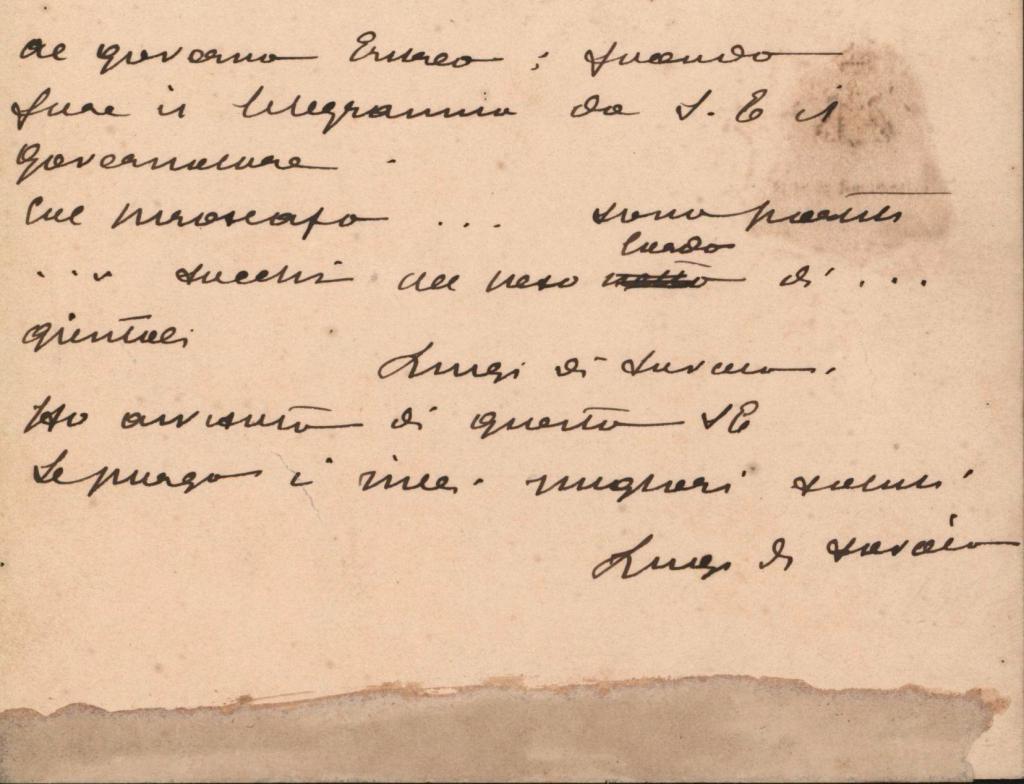 al governo Eritreo ; quando
quae il telegramma da S. E il
governatore
Col piroscafo ... sono partiti
... sacchi del peso lordo netto di ...
quintali
Luigi di Savoia.
Ho avvisato di questo SE
Le porgo i miei migliori saluti
Luigi di Savoia